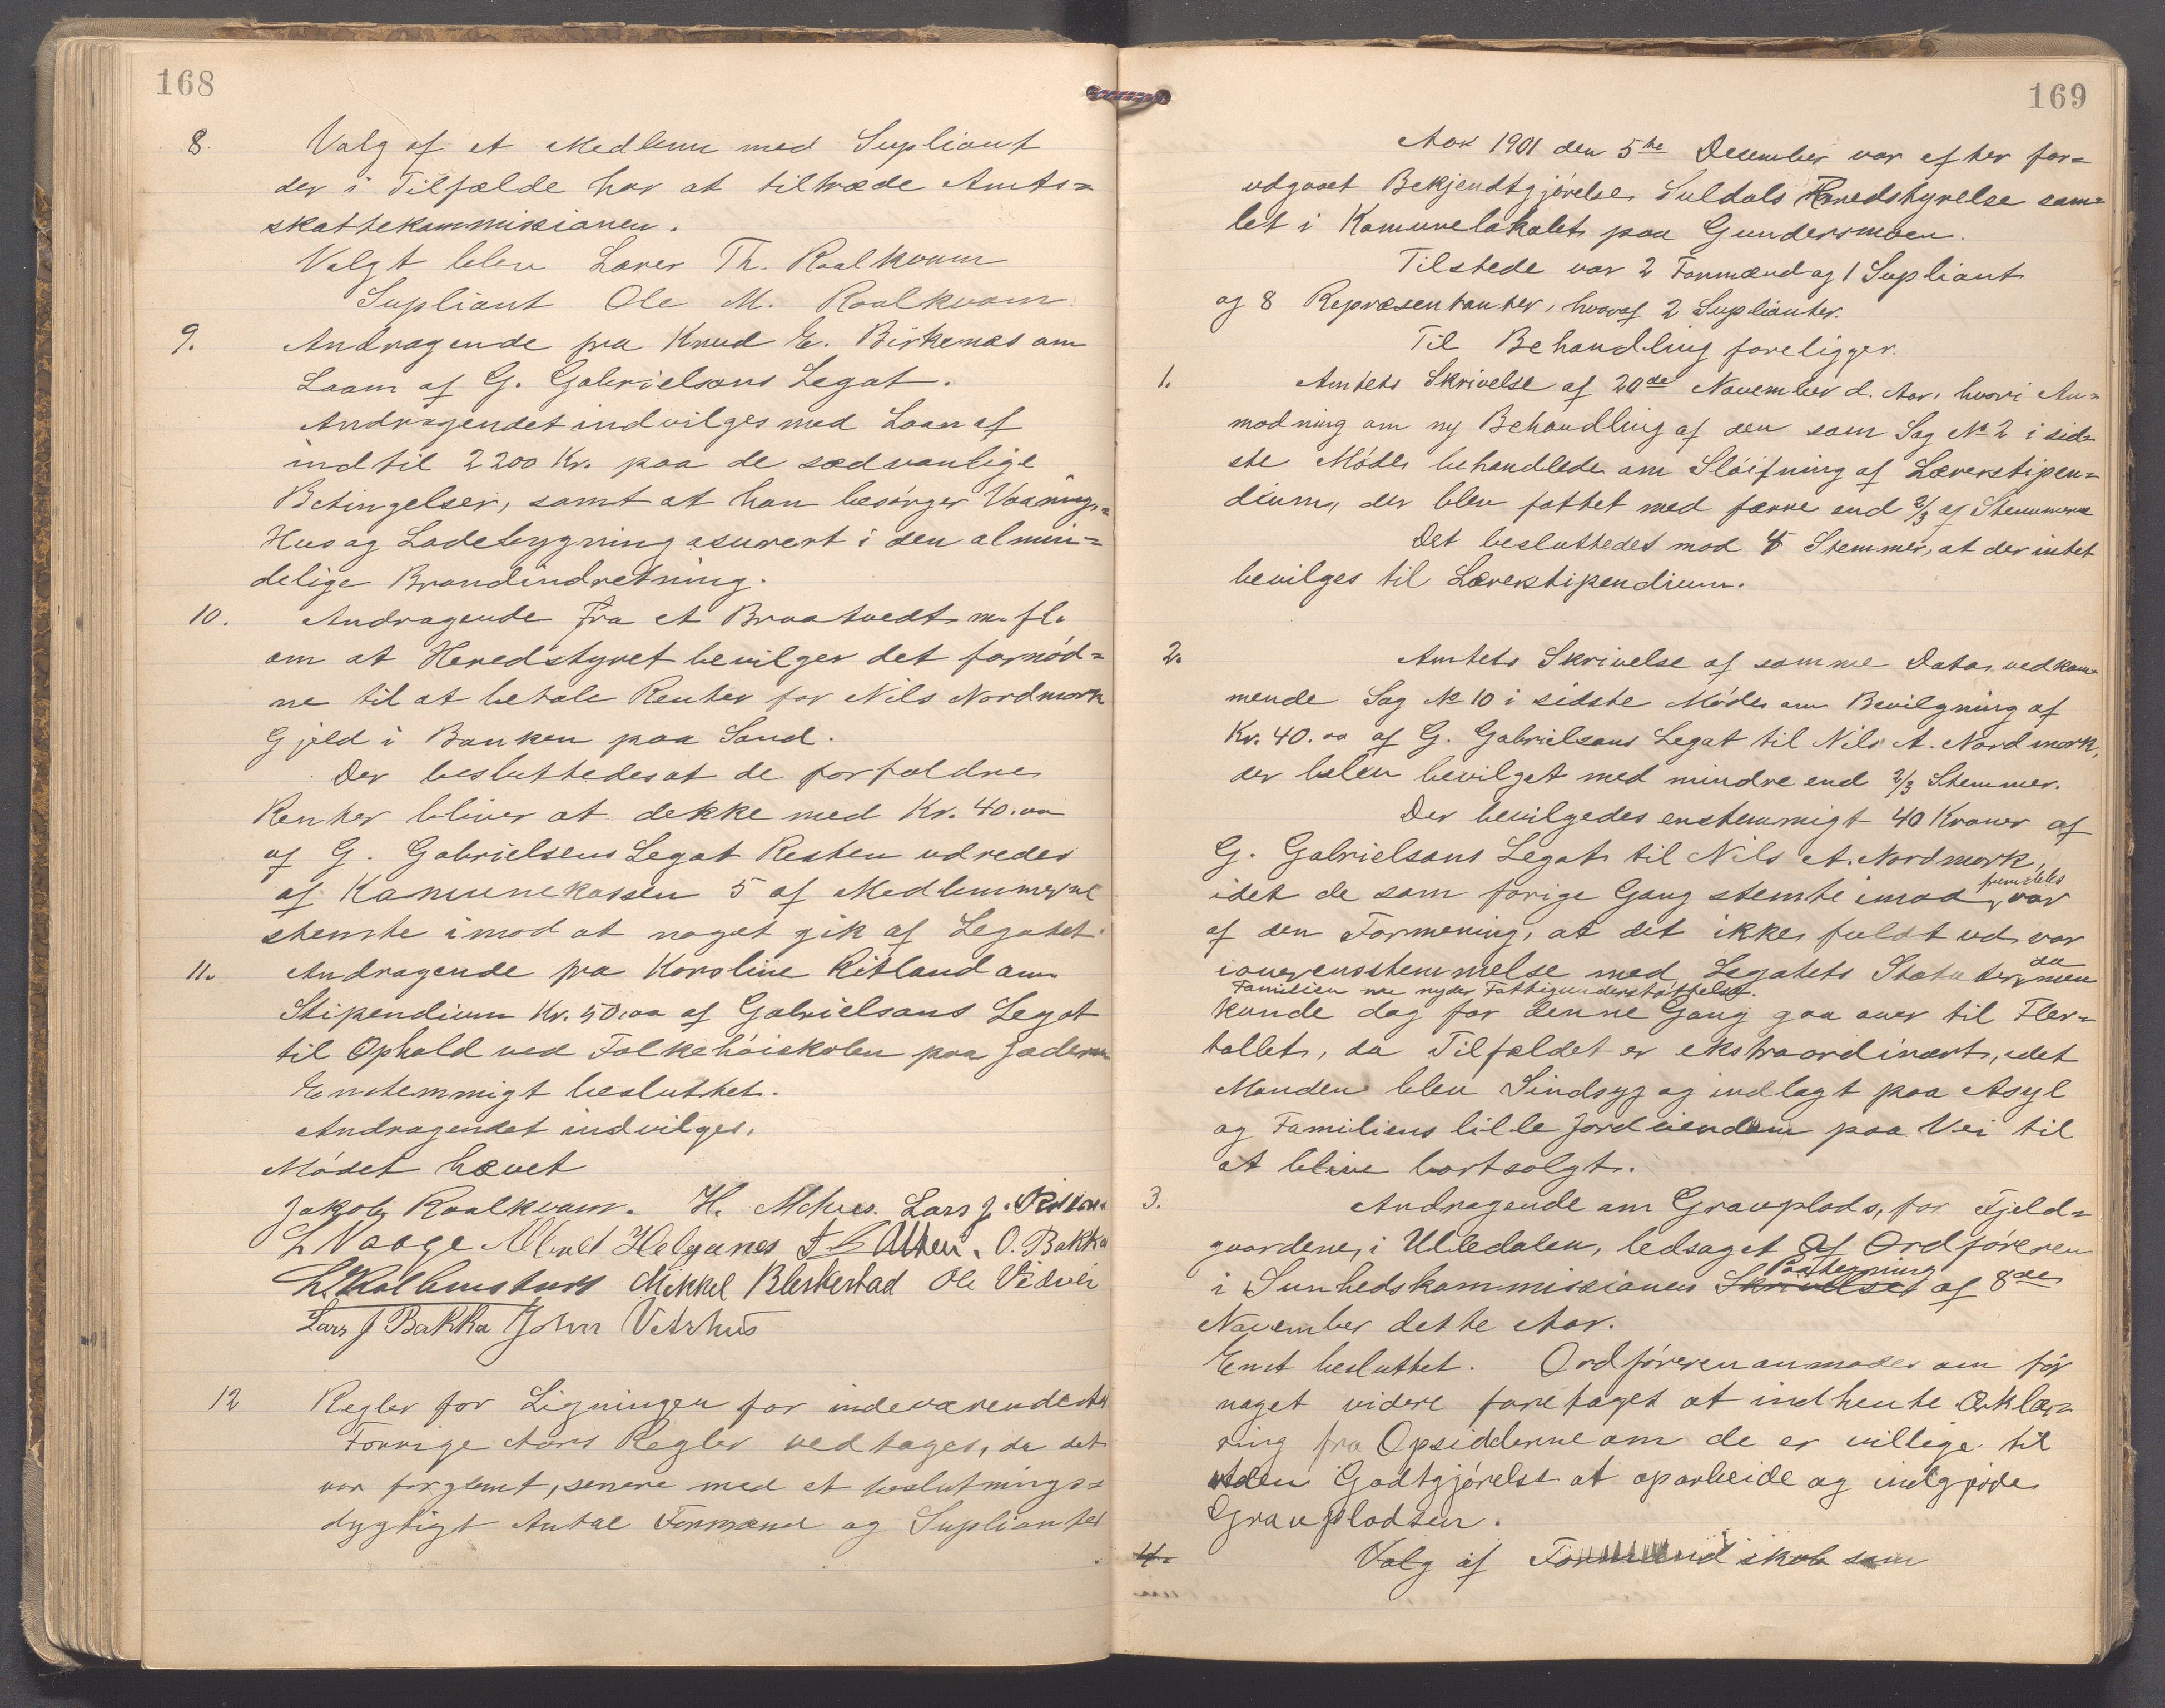 168
8 Valg af et Medlem med Supliant
der i Tilfælde har at tiltræde Amts=
skattekommissionen.
Valgt blev Lærer Th. Roalkvam
Supliant Ole M. Roalkvam.
9. Andragende fra Knud E. Birkenæs om
Laan af G. Gabrielsens Legat.
Andragendet indvilges med Laan af
indtil 2200 Kr. paa de sædvanlige
Betingelser, samt at han besørger Vaanings=
Hus og Ladebygning asurert i den almin=
delige Brandindretning.
10. Andragende fra A Braatvedt m. fl.
om at Heredstyret bevilger det fornød=
ne til at betale Renter for Nils Nordmork
Gjeld i Banken paa Sand.
Der besluttedes at de forfaldne
Renter bliver at dekke med Kr. 40.oo
af G. Gabrielsens Legat Resten udredes
af Kamunekassen 5 af Medlemmerne
stemte imod at noget gik af Legatet.
11. Andragende fra Karoline Ritland om
Stipendium Kr. 50,oo af Gabrielsons Legat
til Ophold ved Folkehøiskolen paa Jæderen
Enstemmigt besluttet.
Andragendet indvilges.
Mødet hævet
Jakob Roalkvam. H. Mehus. Lars J.
L Vaage Helganes O. Bakka
L. Kolbenstvedt Mikkel Bleskestad Ole Vidvei
Lars J Bakka John Vetrhus
12 Regler for Ligningen for indeværende Aar
Forrige Aars Regler vedtages, da det
var forglemt, senere med et beslutnings=
dygtigt Antal Formænd og Suplianter
169
Aar 1901 den 5te December var efter for=
udgaaet Bekjendtgjørelse Suldals Heredstyrelse sam=
let i Kamunelokalet paa Gundersmoen.
Tilstede var 2 Formænd og 1 Supliant
og 8 Repræsentanter, hvoraf 2 Suplianter.
Til Behandling foreligger.
1. Amtets Skrivelse af 20de November d. Aar, hvori An=
modning om ny Behandling af den som Sag No 2 i sid=
ste Møde behandlede om Sløifning af Lærerstipen=
dium, der blev fattet med færre end 2/3 af Stemmerne
Det besluttedes mod 4 Stemmer, at der intet
bevilges til Lærerstipendium.
2. Amtets Skrivelse af samme Dato vedkom=
mende Sag No 10 i sidste Møde om Bevilgning af
Kr. 40.oo af G. Gabrielsons Legat til Nils A. Nordmork,
der blev bevilget med mindre end 2/3 Stemmer.
Der bevilgedes enstemmigt 40 Kroner af
G. Gabrielsons Legat til Nils A. Nordmork,
idet de som forige Gang stemte imod, fremdeles var
af den Formening, at det ikke fuldt ud var
i overensstemmelse med Legatets Statuter, da men
Familien nu nyder Fattigunderstøttelse.
kunde dog for denne Gang gaa over til Fler=
tallet, da Tilfældet er ekstraordinært, idet
Manden blev Sindsyg og indlagt paa Asyl
og Familiens lille Jordeiendom paa Vei til
at blive bortsolgt.
3. Andragende om Gravplads, for Fjeld=
gaardene, i Ulledalen, ledsaget af Ordføreren
i Sunhedskommissionens Skrivelse Paategning af 8de
November dette Aar.
Enst besluttet. Ordføreren anmodes om før
noget videre foretaget at indhente Erklæ=
ring fra Opsidderne om de er villige til
uden Godtgjørelse at oparbeide og indgjøde
Gravpladsen.
4. Valg af Formandskab som